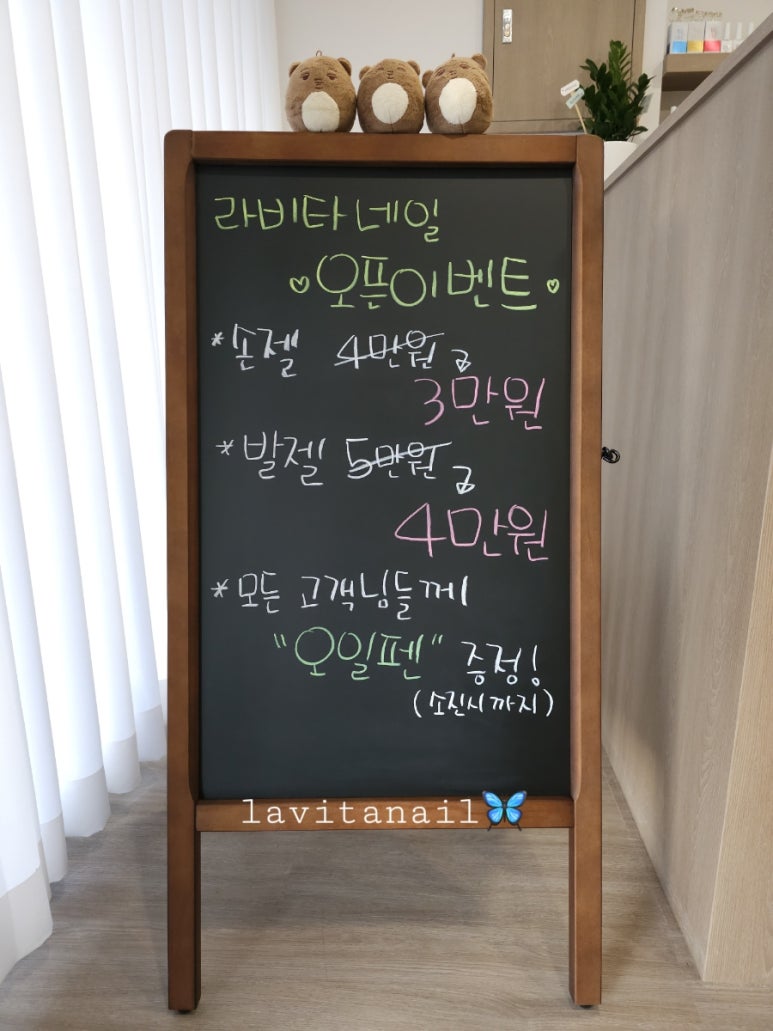 라비타네일
♡오픈이벤트♡
*손젤 4만원
3만원
*발젤 5만원
4만원
*모든 고객님들께
"오일펜" 증정!
(소진시까지)
lavitanail🦋